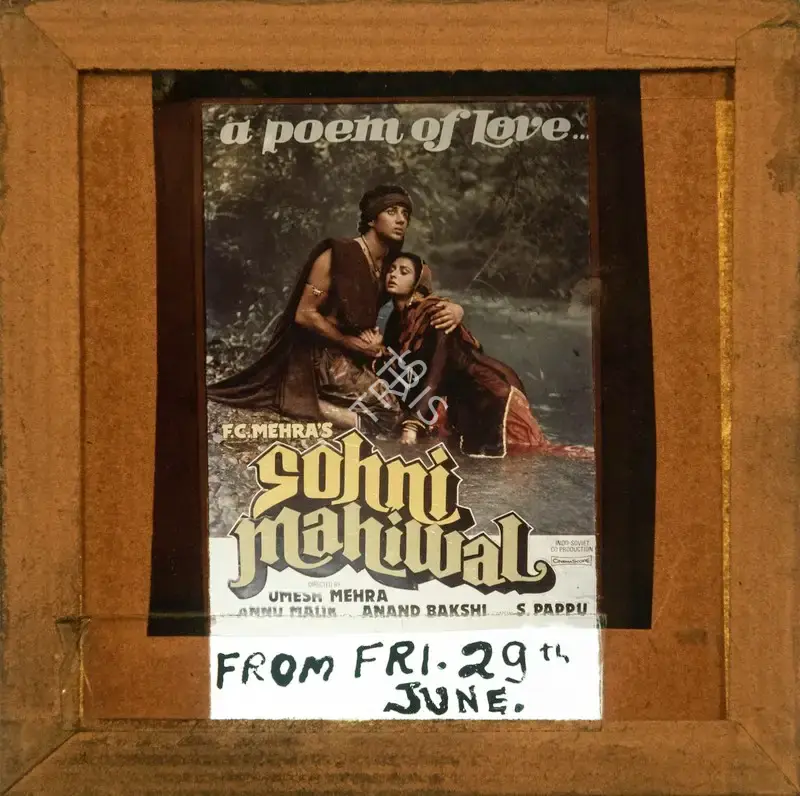 a poem of Love...
F.C. MEHRA'S
sohni
mahiwal
INDO-SOVIET
CO PRODUCTION
CINEMASCOPE
DIRECTED BY
UMESH MEHRA
ANNU MALIK ANAND BAKSHI S. PAPPU
FROM FRI. 29th
JUNE.